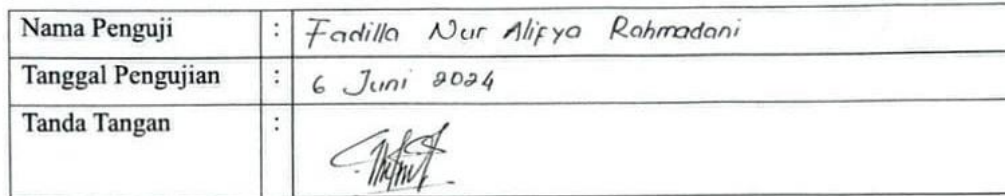 Nama Penguji : Fadilla Nur Alifya Rahmadani
Tanggal Pengujian : 6 Juni 2024
Tanda Tangan :